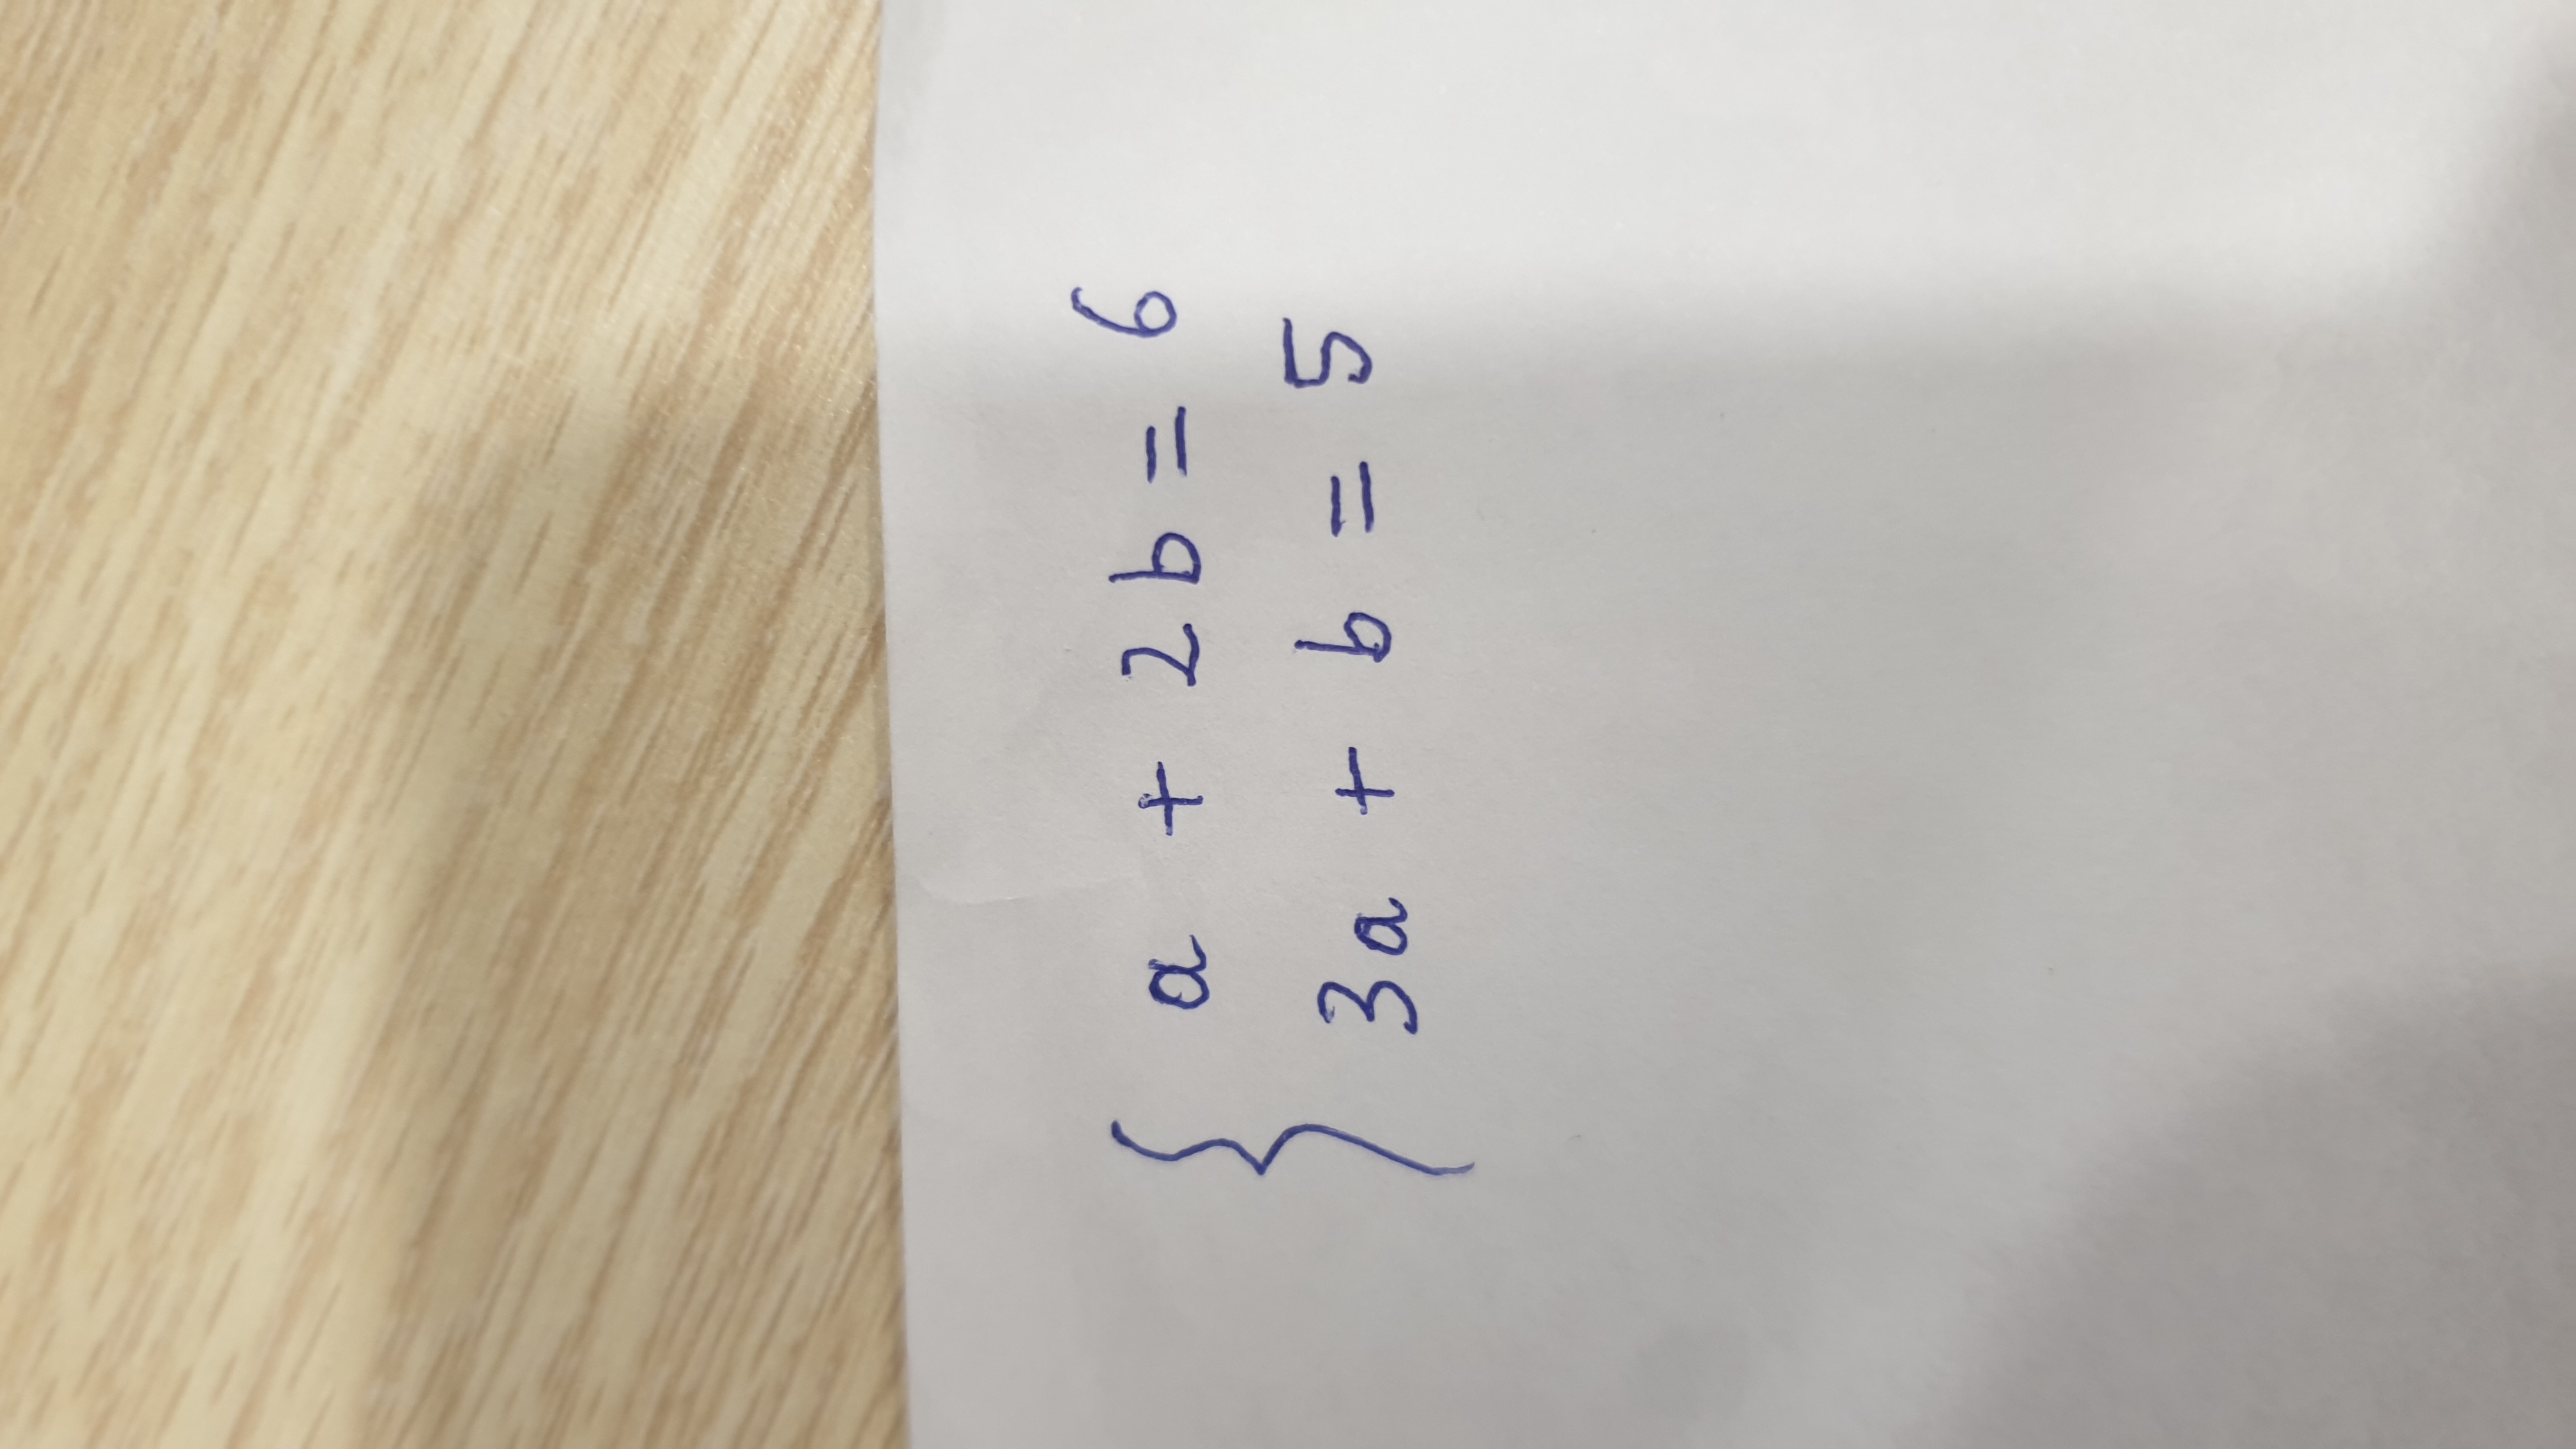 { a + 2b = 6
3a + b = 5